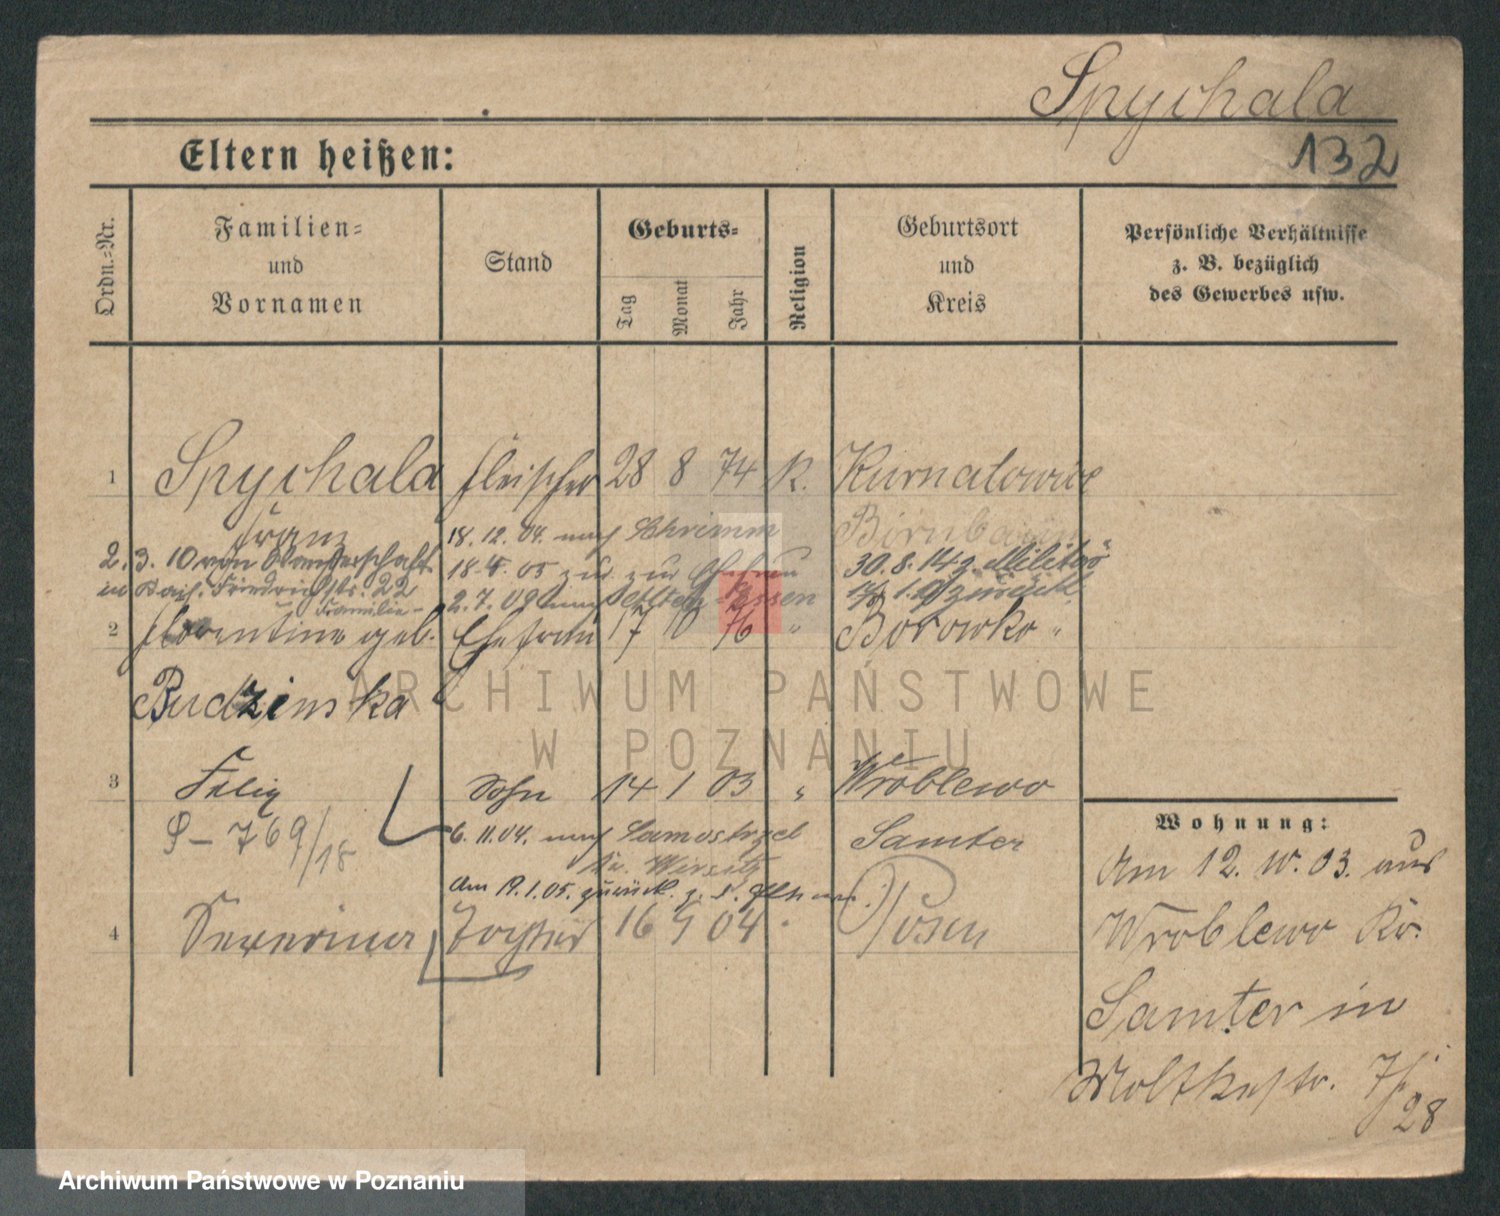 Spychala
132
Eltern heißen:
Ordn.-Nr.
Familien-
und
Vornamen
Stand
Geburts-
Tag
Monat
Jahr
Religion
Geburtsort
und
Kreis
Persönliche Verhältnisse
z. B. bezüglich
des Gewerbes usw.
1 Spychala Fleischer 28 8 74 K. Kurnatowice
Franz 18.12.04. nach Schrimm Birnbaum
2. 3. 10 von Wanderschaft 18. 4. 05 zur Ehefrau 30.8.14 z. Militär
in Kais. Friedrichstr. 22 2.7.09 nach Essen zurück
Familie
2 Florentine geb. Ehefrau 17 10 76 " Borowko "
Budzinska
3 Felix Sohn 14 1 03 " Wroblewo
6.11.04. nach Samostrzel Samter
S - 769/18 Kr. Wirsitz
Am 19.1.05. zurück z. d. Eltern.
4 Severina Tochter 16 9 04 " Posen
Wohnung:
Am 12. 10. 03. aus
Wroblewo Kr.
Samter in
Moltkestr. 7
28
ARCHIWUM PAŃSTWOWE
W POZNANIU
Archiwum Państwowe w Poznaniu